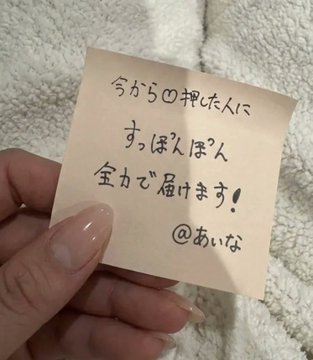 今から♡押した人に
すっぽんぽん
全力で届けます!
@あいな